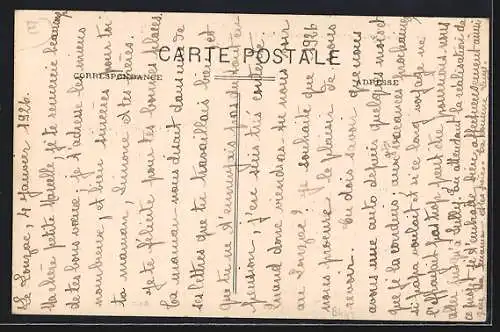 CARTE POSTALE
CORRESPONDANCE
ADRESSE
Le Louzac, 4 Janvier 1926
Ma chère petite Marcelle, je te remercie beaucoup
de tes bons vœux; je t'adresse les miens
nombreux, et bien sincères pour toi
ta maman, Simone et tes frères.
Je te félicite pour tes bonnes places.
Ta maman nous disait dans une de
ses lettres que tu travaillais bien et
que tu ne t'ennuyais pas du tout en
pension, j'en suis très contente.
Quand donc viendras-tu nous voir
au Louzac? je souhaite que 1926
nous procure le plaisir de nous
revoir. Tu dois savoir que nous
avons une auto depuis quelques mois et
que je la conduis; aux vacances prochaines
si papa voulait et si ce long voyage ne
l'effrayait pas trop, peut être pourrions-nous
aller jusqu'à Sully. En attendant la réalisation de
ce projet je t'embrasse bien affectueusement ainsi
que ta maman et tes frères.